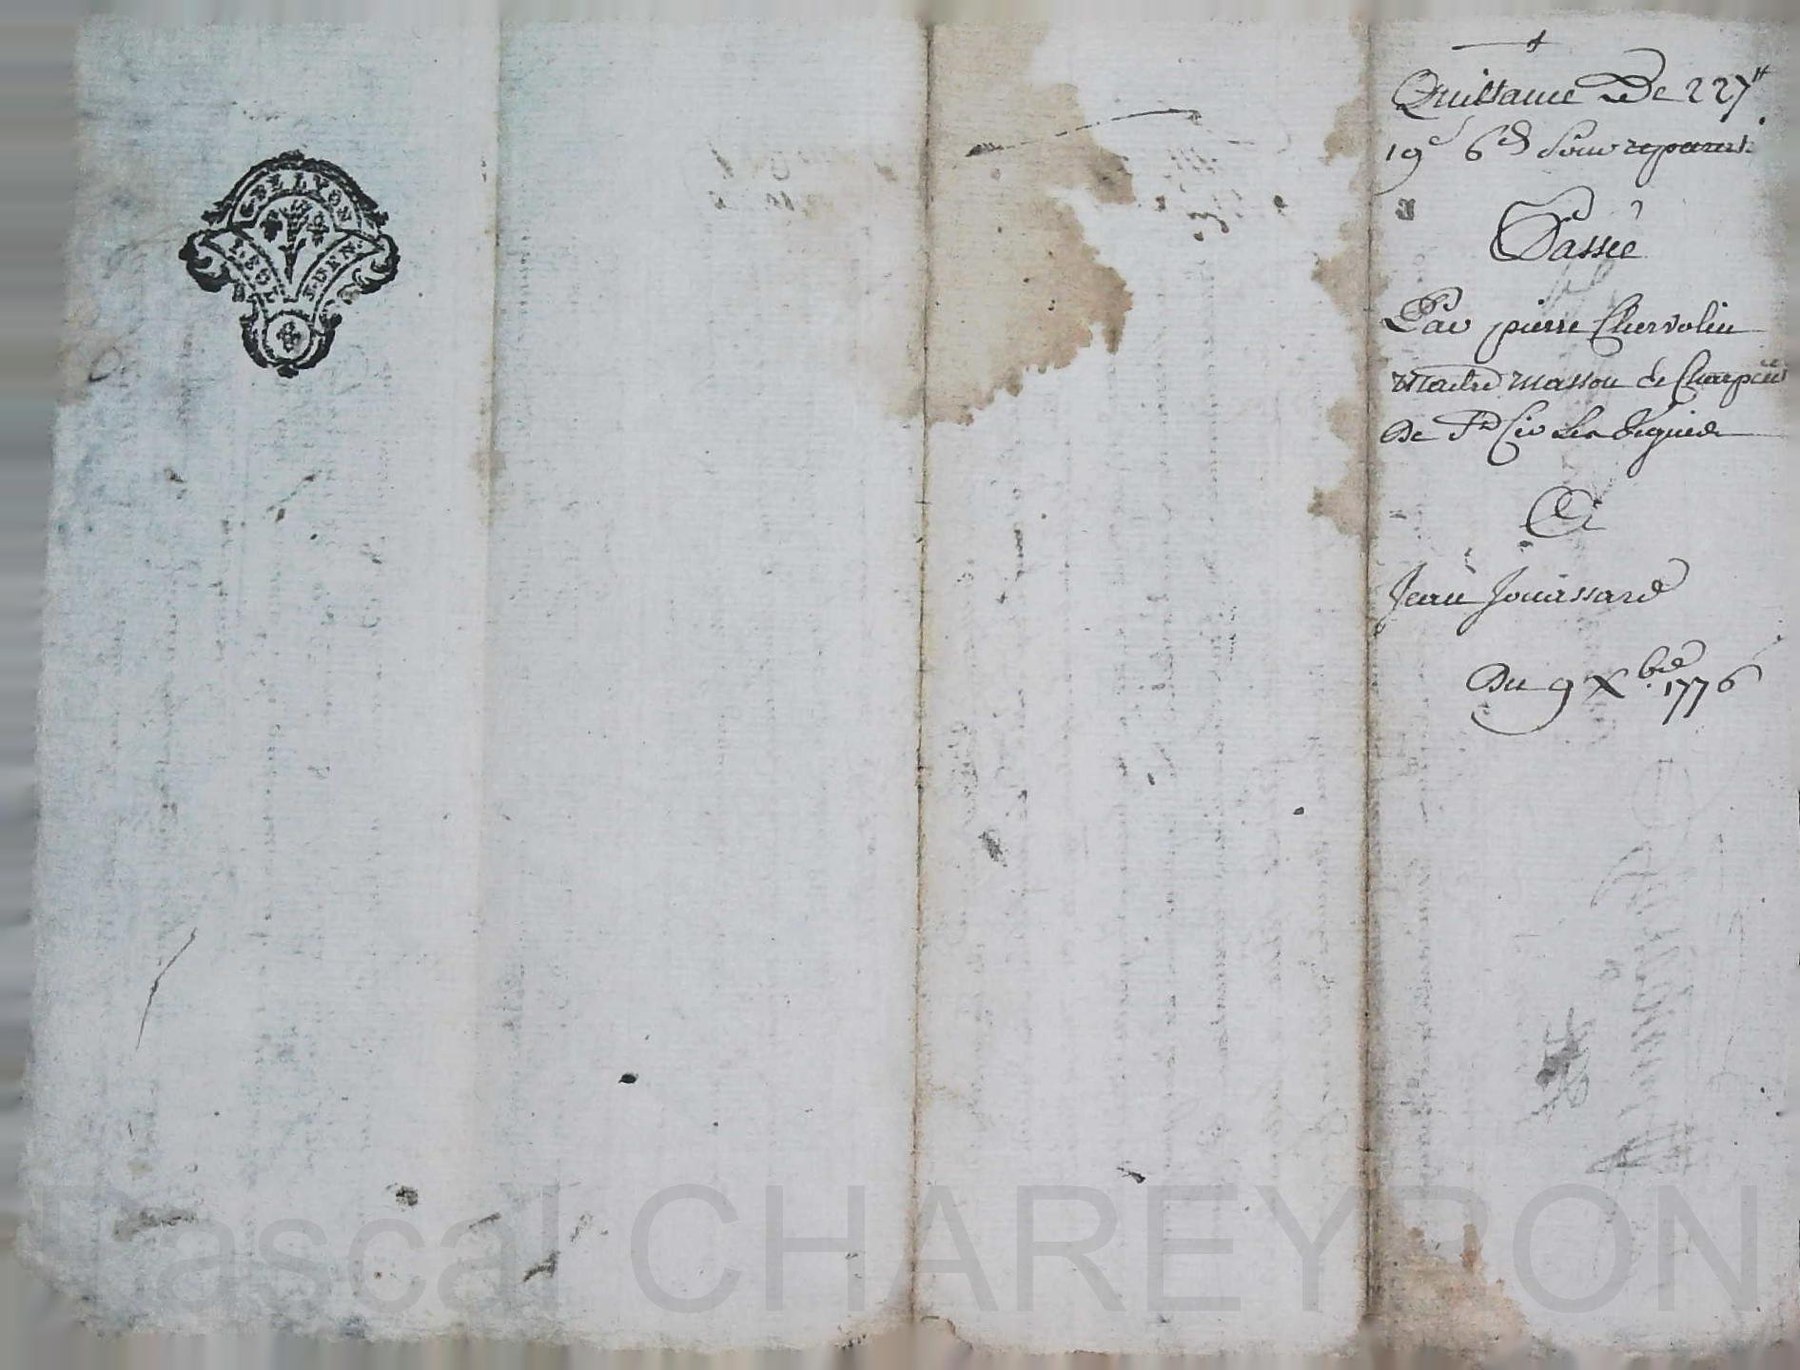 G. DE LYON
1. SOL
4 DEN.
Quittance De 227 ^tt
19 ^s 6 ^d Pour reparat.
Passée
Par pierre Chervolin
Maitre Masson & Charp
De St Cir Les Vignes
A
Jean Jouassard
Du 9 X bre 1776
Pascal CHAREYRON